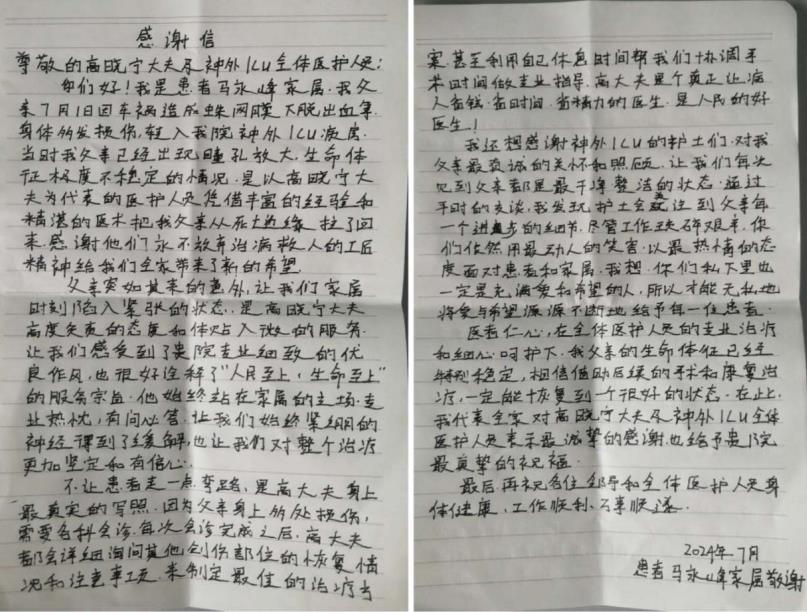 感谢信
尊敬的高晓宁大夫及神外ICU全体医护人员:
你们好!我是患者马永峰家属.我父
亲7月1日因车祸造成蛛网膜下腔出血等
身体多发损伤,转入我院神外ICU病房.
当时我父亲已经出现瞳孔放大,生命体
征极度不稳定的情况.是以高晓宁大
夫为代表的医护人员凭借丰富的经验和
精湛的医术把我父亲从死亡边缘拉了回
来.感谢他们永不放弃治病救人的工匠
精神给我们全家带来了新的希望.
父亲突如其来的意外,让我们家属
时刻陷入紧张的状态.是高晓宁大夫
高度负责的态度和体贴入微的服务.
让我们感受到了贵院专业细致的优
良作风,也很好诠释了"人民至上,生命至上"
的服务宗旨.他始终站在家属的立场.专
业热忱,有问必答.让我们始终紧绷的
神经得到了缓解,也让我们对整个治疗
更加坚定和有信心.
不让患者走一点弯路,是高大夫身上
最真实的写照.因为父亲身上多处损伤,
需要各科会诊.每次会诊完成之后.高大夫
都会详细询问其他创伤部位的恢复情
况和注意事项.来制定最佳的治疗方
案.甚至利用自己休息时间帮我们协调手
术时间做专业指导.高大夫是个真正让病
人省钱.省时间.省精力的医生.是人民的好
医生!
我还想感谢神外ICU的护士们.对我
父亲最真诚的关怀和照顾.让我们每次
见到父亲都是最干净整洁的状态.通过
平时的交谈,我发现护士会关注到父亲每
一个进步的细节.尽管工作琐碎艰辛.你
们依然用最动人的笑容.以最热情的态
度面对患者和家属.我想.你们私下里也
一定是充满爱和希望的人,所以才能无私地
将爱与希望源源不断地给予每一位患者.
医者仁心,在全体医护人员的专业治疗
和细心呵护下.我父亲的生命体征已经
特别稳定,相信借助后续的手术和康复治
疗,一定能恢复到一个很好的状态.在此,
我代表全家对高晓宁大夫及神外ICU全体
医护人员表示最诚挚的感谢.也给予贵院
最真挚的祝福.
最后再祝各位领导和全体医护人员身
体健康、工作顺利、万事顺遂.
2024年7月
患者马永峰家属敬谢